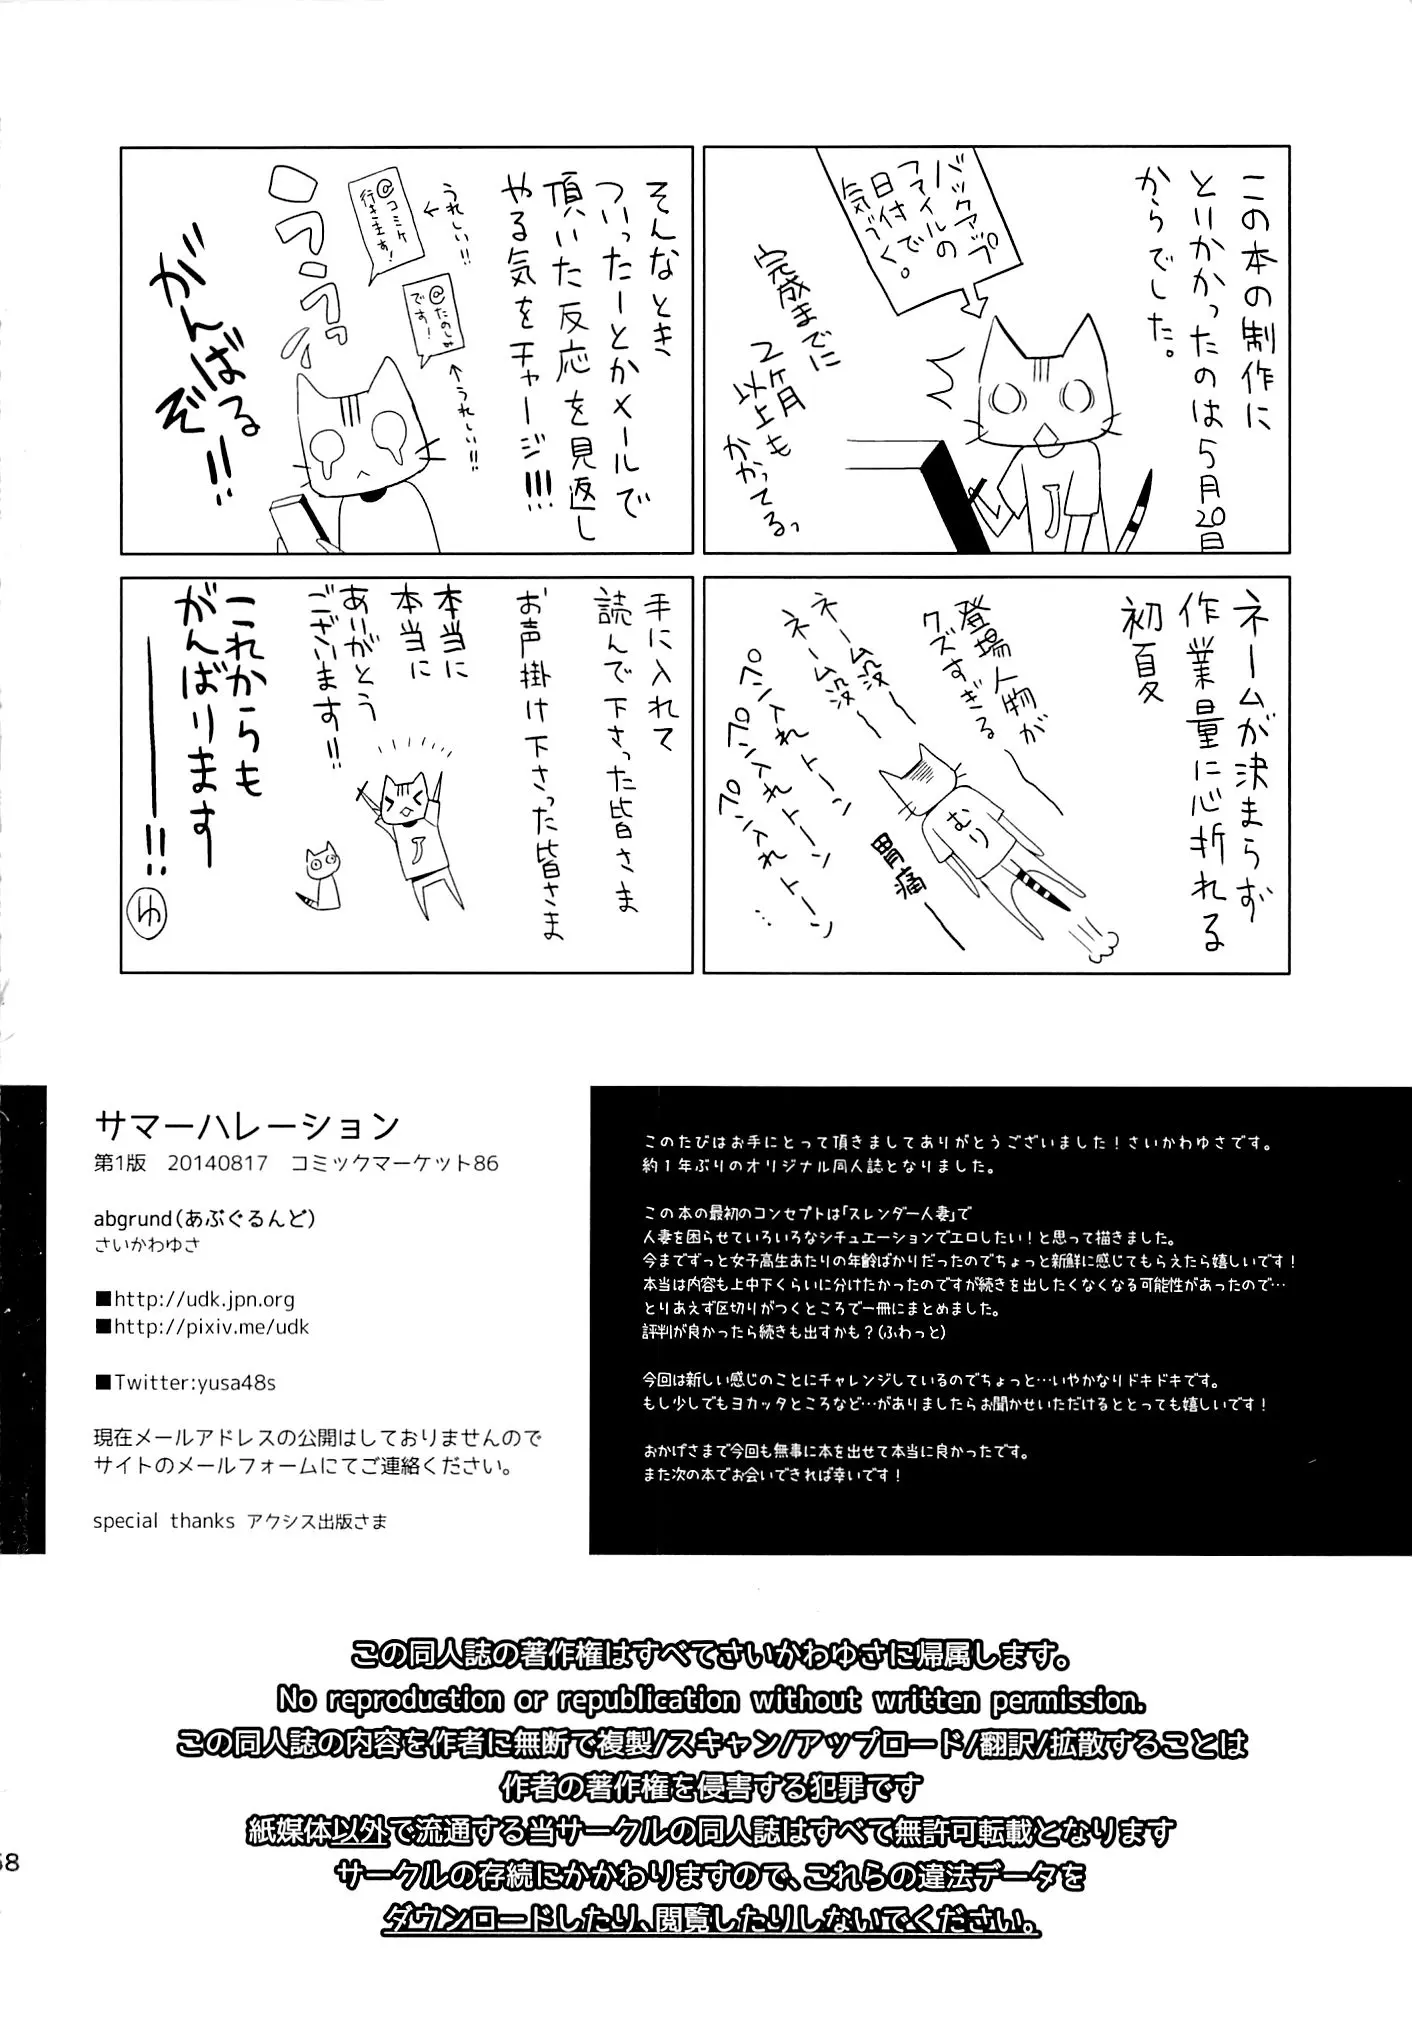 この本の制作に
とりかかったのは5月20日
からでした。
バックアップ
ファイルの
日付で
気づく。
完成までに
2ヶ月
以上も
かかってるっ
ネームが決まらず
作業量に心折れる
初夏
登場人物が
クズすぎる
ネーム没ー
ネーム没ー
ペン入れトーン
ペン入れトーン
ペン入れトーン…
むり
胃痛
そんなとき
ついったーとかメールで
頂いた反応を見返し
やる気をチャージ!!!
@コミケ
行きます!
うれしい!!
@たのしみ
です!
うれしい!!
がんばる
ぞ!!
手に入れて
読んで下さった皆さま
お声掛け下さった皆さま
本当に
本当に
ありがとう
ございます!!
これからも
がんばります
ー!!
ゆ
サマーハレーション
第1版 20140817 コミックマーケット86
abgrund(あぶぐるんど)
さいかわゆさ
■http://udk.jpn.org
■http://pixiv.me/udk
■Twitter:yusa48s
現在メールアドレスの公開はしておりませんので
サイトのメールフォームにてご連絡ください。
special thanks アクシス出版さま
このたびはお手にとって頂きましてありがとうございました!さいかわゆさです。
約1年ぶりのオリジナル同人誌となりました。
この本の最初のコンセプトは「スレンダー人妻」で
人妻を困らせていろいろなシチュエーションでエロしたい!と思って描きました。
今までずっと女子高生あたりの年齢ばかりだったのでちょっと新鮮に感じてもらえたら嬉しいです!
本当は内容も上中下くらいに分けたかったのですが続きを出したくなくなる可能性があったので…
とりあえず区切りがつくところで一冊にまとめました。
評判が良かったら続きも出すかも?(ふわっと)
今回は新しい感じのことにチャレンジしているのでちょっと…いやかなりドキドキです。
もし少しでもヨカッタところなど…がありましたらお聞かせいただけるととっても嬉しいです!
おかげさまで今回も無事に本を出せて本当に良かったです。
また次の本でお会いできれば幸いです!
この同人誌の著作権はすべてさいかわゆさに帰属します。
No reproduction or republication without written permission.
この同人誌の内容を作者に無断で複製/スキャン/アップロード/翻訳/拡散することは
作者の著作権を侵害する犯罪です
紙媒体以外で流通する当サークルの同人誌はすべて無許可転載となります
サークルの存続にかかわりますので、これらの違法データを
ダウンロードしたり、閲覧したりしないでください。